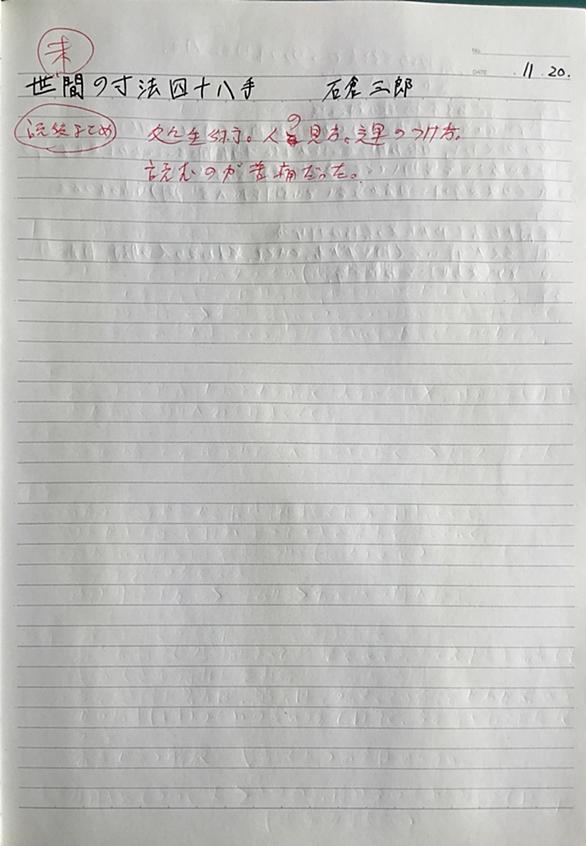 未
No.
DATE 11.20.
世間の寸法四十八手 石倉三郎
読後まとめ 処世術。人の見方。運のつけ方。
読むのが苦痛だった。